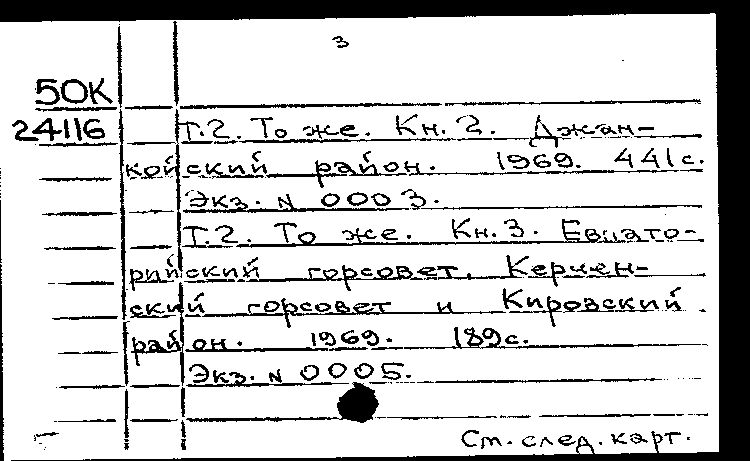 3
50К
24116 Т.2. То же. Кн. 2. Джан-
койский район. 1969. 441с.
Экз. № 0003.
Т.2. То же. Кн. 3. Евпато-
рийский горсовет. Керчен-
ский горсовет и Кировский
район. 1969. 189с.
Экз. № 0005.
См. след. карт.